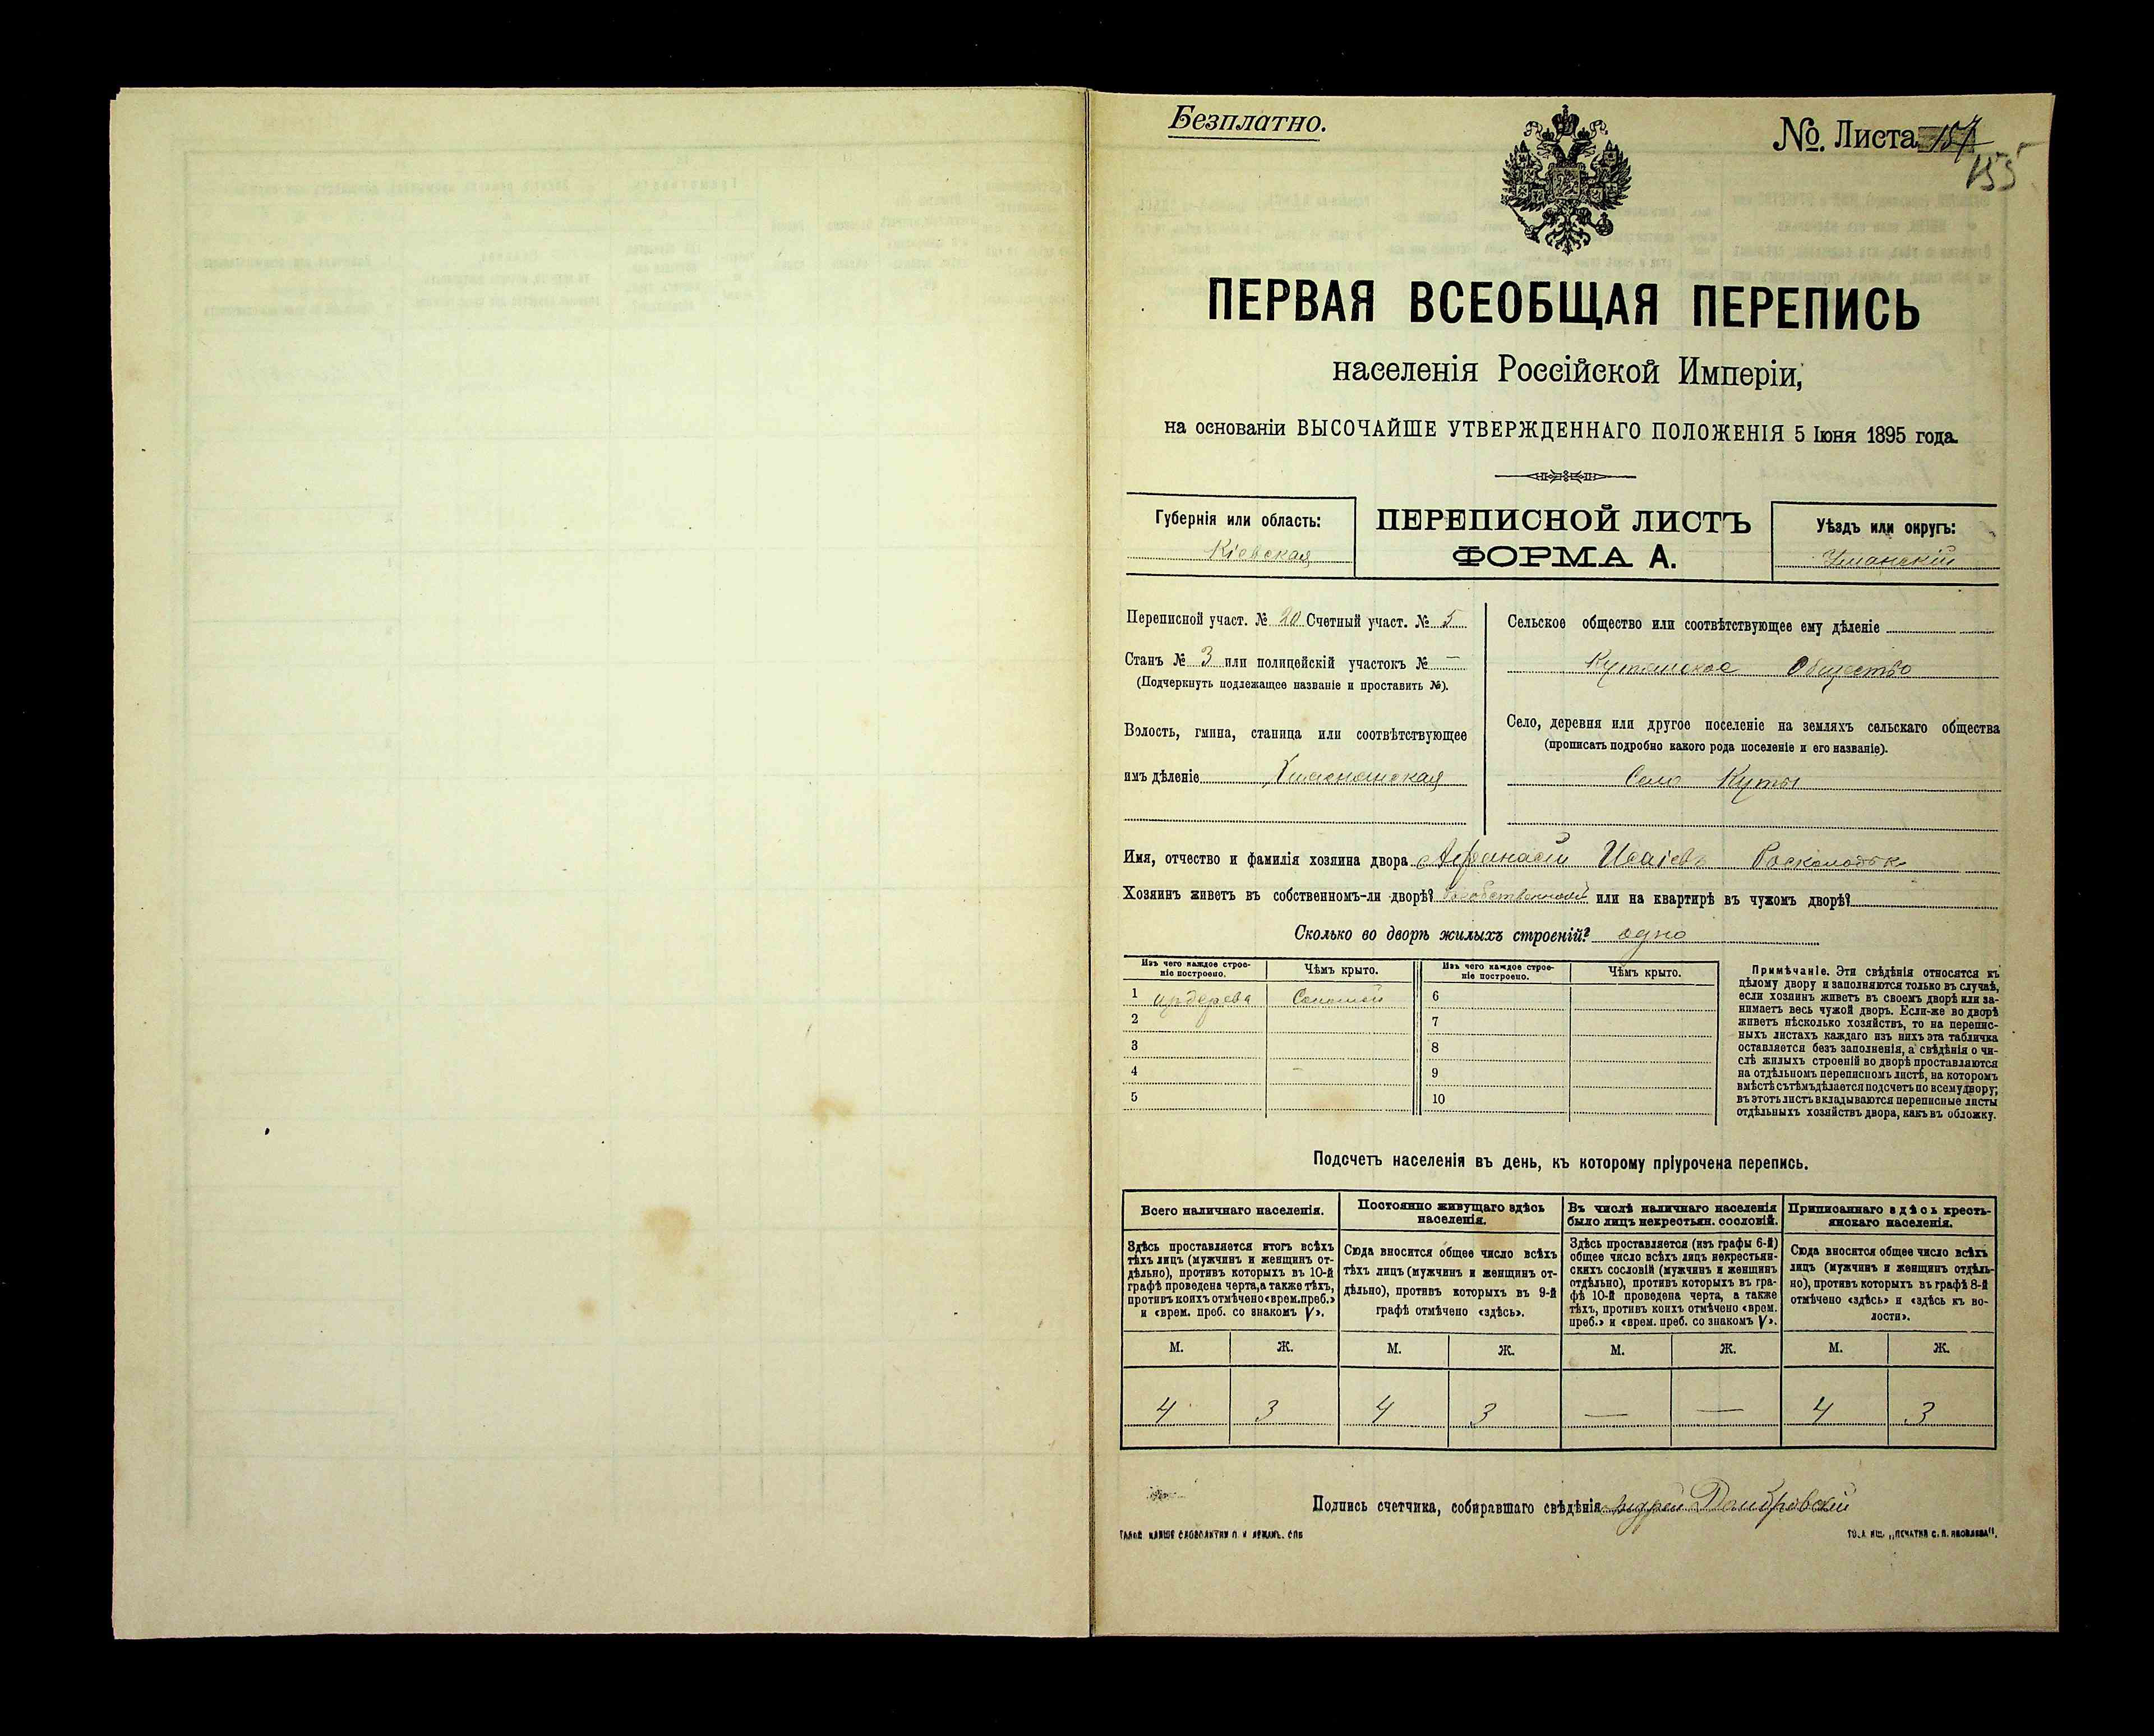 Безплатно.
№. Листа 157
155
ПЕРВАЯ ВСЕОБЩАЯ ПЕРЕПИСЬ
населенія Россійской Имперіи,
на основаніи ВЫСОЧАЙШЕ УТВЕРЖДЕННАГО ПОЛОЖЕНІЯ 5 Іюня 1895 года.
Губернія или область:
Кіевская
ПЕРЕПИСНОЙ ЛИСТЪ
ФОРМА А.
Уѣздъ или округъ:
Уманскій
Переписной участ. № 20 Счетный участ. № 5
Станъ № 3 или полицейскій участокъ № —
(Подчеркнуть подлежащее названіе и проставить №).
Волость, гмина, станица или соотвѣтствующее
имъ дѣленіе
Сельское общество или соотвѣтствующее ему дѣленіе
Кутянское Общество
Село, деревня или другое поселеніе на земляхъ сельскаго общества
(прописать подробно какого рода поселеніе и его названіе).
Село Куты
Имя, отчество и фамилія хозяина двора Афанасій Исаіевъ
Хозяинъ живетъ въ собственномъ-ли дворѣ? или на квартирѣ въ чужомъ дворѣ?
Сколько во дворѣ жилыхъ строеній? одно
Изъ чего каждое строе-
ніе построено.
Чѣмъ крыто.
Изъ чего каждое строе-
ніе построено.
Чѣмъ крыто.
1 издерева Соломой
2
3
4
5
6
7
8
9
10
Примѣчаніе. Эти свѣдѣнія относятся къ
цѣлому двору и заполняются только въ случаѣ,
если хозяинъ живетъ въ своемъ дворѣ или за-
нимаетъ весь чужой дворъ. Если-же во дворѣ
живетъ нѣсколько хозяйствъ, то на перепис-
ныхъ листахъ каждаго изъ нихъ эта табличка
оставляется безъ заполненія, а свѣдѣнія о чи-
слѣ жилыхъ строеній во дворѣ проставляются
на отдѣльномъ переписномъ листѣ, на которомъ
вмѣстѣ сътѣмъ дѣлается подсчетъ по всему двору;
въ этотъ листъ вкладываются переписные листы
отдѣльныхъ хозяйствъ двора, какъ въ обложку.
Подсчетъ населенія въ день, къ которому пріурочена перепись.
Всего наличнаго населенія.
Здѣсь проставляется итогъ всѣхъ
тѣхъ лицъ (мужчинъ и женщинъ от-
дѣльно), противъ которыхъ въ 10-й
графѣ проведена черта, а также тѣхъ,
противъ коихъ отмѣчено «врем. преб.»
и «врем. преб. со знакомъ V».
Постоянно живущаго здѣсь
населенія.
Сюда вносится общее число всѣхъ
тѣхъ лицъ (мужчинъ и женщинъ от-
дѣльно), противъ которыхъ въ 9-й
графѣ отмѣчено «здѣсь».
Въ числѣ наличнаго населенія
было лицъ некрестьян. сословій.
Здѣсь проставляется (изъ графы 6-й)
общее число всѣхъ лицъ некрестьян-
скихъ сословій (мужчинъ и женщинъ
отдѣльно), противъ которыхъ въ гра-
фѣ 10-й проведена черта, а также
тѣхъ, противъ коихъ отмѣчено «врем.
преб.» и «врем. преб. со знакомъ V».
Приписаннаго здѣсь кресть-
янскаго населенія.
Сюда вносится общее число всѣхъ
лицъ (мужчинъ и женщинъ отдѣль-
но), противъ которыхъ въ графѣ 8-й
отмѣчено «здѣсь» и «здѣсь къ во-
лости».
М. Ж. М. Ж. М. Ж. М. Ж.
4 3 4 3 — — 4 3
Подпись счетчика, собиравшаго свѣдѣнія Андрей Домбровскій